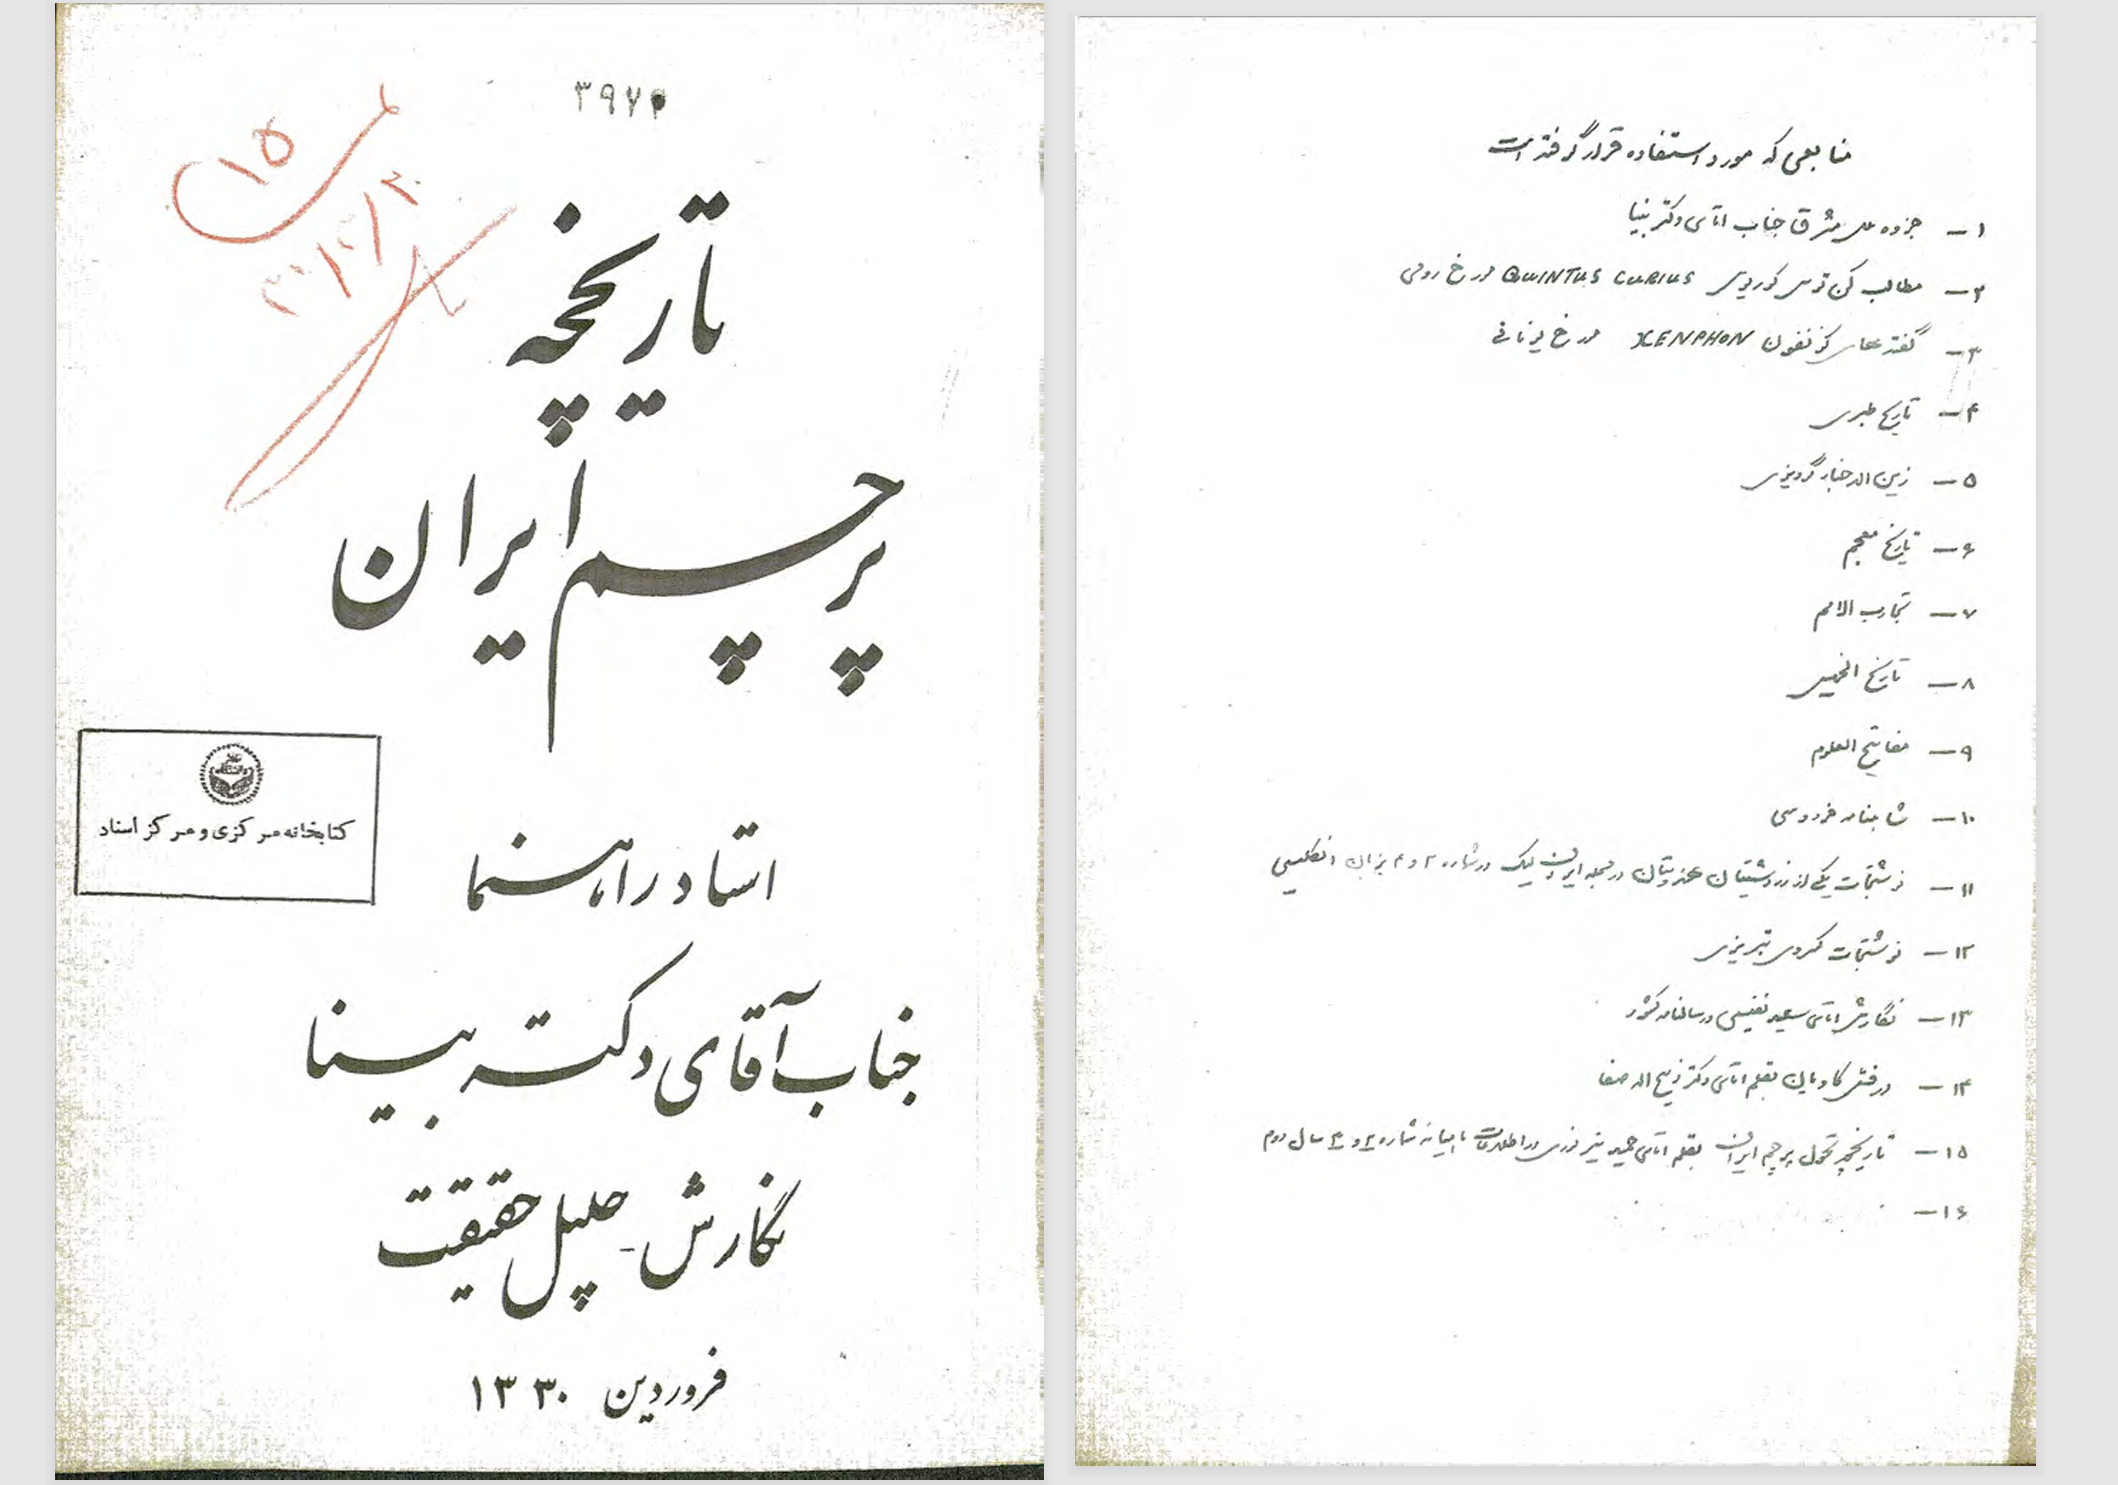 ۳۹۷۴
۱۵
تاریخچه
پرچم ایران
کتابخانه مرکزی و مرکز اسناد
استاد راهنما
جناب آقای دکتر بینا
نگارش - جلیل حقیقت
فروردین ۱۳۳۰
منابعی که مورد استفاده قرار گرفته است
۱ – جزوه ملل مشرق جناب آقای دکتر بینا
۲ – مطالب کن توس کورتیوس QUINTUS CURIUS مورخ رومی
۳ – گفته های گزنفون XENPHON مورخ یونانی
۴ – تاریخ طبری
۵ – زین الاخبار گردیزی
۶ – تاریخ معجم
۷ – تجارب الامم
۸ – تاریخ الخمیس
۹ – مفاتیح العلوم
۱۰ – شاهنامه فردوسی
۱۱ – نوشتجات یکی از زردشتیان هندوستان در مجله ایران لیک در شماره ۲ و ۴ بزبان انگلیسی
۱۲ – نوشتجات کسروی تبریزی
۱۳ – نگارش آقای سعید نفیسی در سالنامه کشور
۱۴ – درفش کاویان بقلم آقای دکتر ذبیح اله صفا
۱۵ – تاریخچه تحول پرچم ایران بقلم آقای حمید نیر نوری در اطلاعات ماهیانه شماره ۲ و ۳ سال دوم
۱۶ –